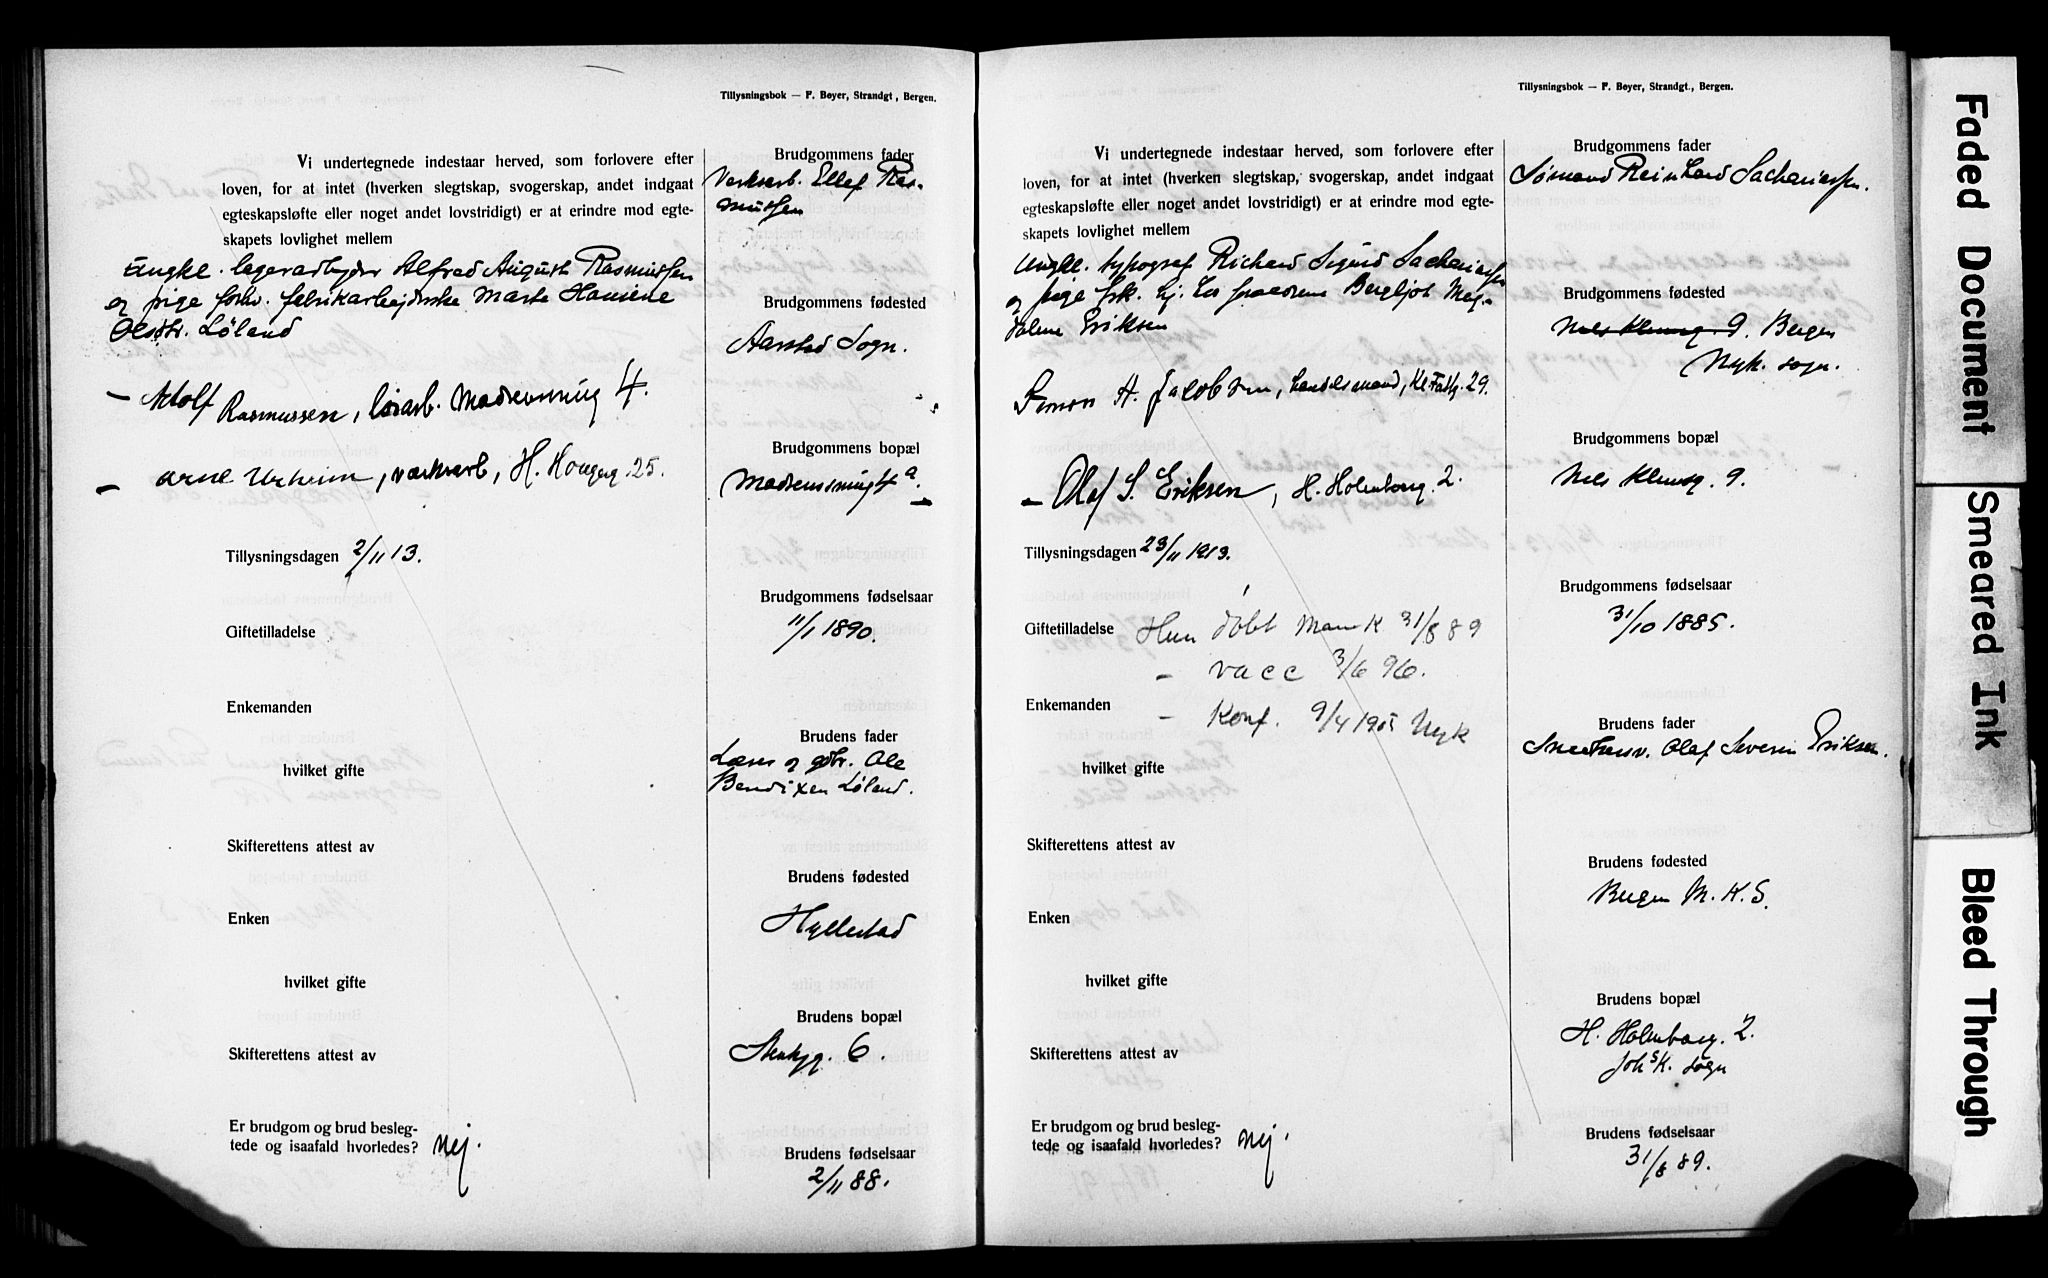 Tillysningsbok — F. Beyer, Strandgt, Bergen.
Vi undertegnede indestaar herved, som forlovere efter
loven, for at intet (hverken slegtskap, svogerskap, andet indgaat
egteskapsløfte eller noget andet lovstridigt) er at erindre mod egte-
skapets lovlighet mellem
Ungkl. lagerarbeyder Alfred August Rasmussen
og pige forhv. fabrikarbeyderske Marta Hansine
Olsdtr. Løland
— Adolf Rasmussen, løsarb. Madssensmug 4.
— Arne Urheim, værksarb, H. Haugeg. 25.
Tillysningsdagen 2/11 13.
Giftetilladelse
Enkemanden
hvilket gifte
Skifterettens attest av
Enken
hvilket gifte
Skifterettens attest av
Er brudgom og brud besleg-
tede og isaafald hvorledes? Nej.
Brudgommens fader
Værksarb. Ellef Ras-
mussen
Brudgommens fødested
Aarstad Sogn.
Brudgommens bopæl
Madsenssmug 4 a.
Brudgommens fødselsaar
11/1 1890.
Brudens fader
Lærer og gbr. Ole
Bendixen Løland.
Brudens fødested
Hyllestad
Brudens bopæl
6.
Brudens fødselsaar
2/11 88.
Tillysningsbok — F. Beyer, Strandgt., Bergen.
Vi undertegnede indestaar herved, som forlovere efter
loven, for at intet (hverken slegtskap, svogerskap, andet indgaat
egteskapsløfte eller noget andet lovstridigt) er at erindre mod egte-
skapets lovlighet mellem
Ungkl. typograf Richard Sigurd Sachariassen
og pige frk. hj. hos forældrene Bergljot Mag-
dalene Eriksen
Simon A. Jacobsen, handelsmand, Kl. Fattg. 29.
— Olaf S. Eriksen, H. Holmboeg. 2.
Tillysningsdagen 23/11 1913.
Giftetilladelse Hun døbt Mariæ K 31/8 89
— vacc 3/6 96.
Enkemanden — Konf. 9/4 1905 Nyk
hvilket gifte
Skifterettens attest av
Enken
hvilket gifte
Skifterettens attest av
Er brudgom og brud besleg-
tede og isaafald hvorledes? Nej.
Brudgommens fader
Sømand Reinhard Sachariassen.
Brudgommens fødested
Nels Klemsg 9. Bergen
Nyk. sogn.
Brudgommens bopæl
Nels Klemsg. 9.
Brudgommens fødselsaar
31/10 1885.
Brudens fader
Snedkersv. Olaf Severin Eriksen.
Brudens fødested
Bergen M. K. S.
Brudens bopæl
H. Holmboeg. 2.
Joh s K. sogn
Brudens fødselsaar
31/8 89.
Faded Document
Smeared Ink
Bleed Through